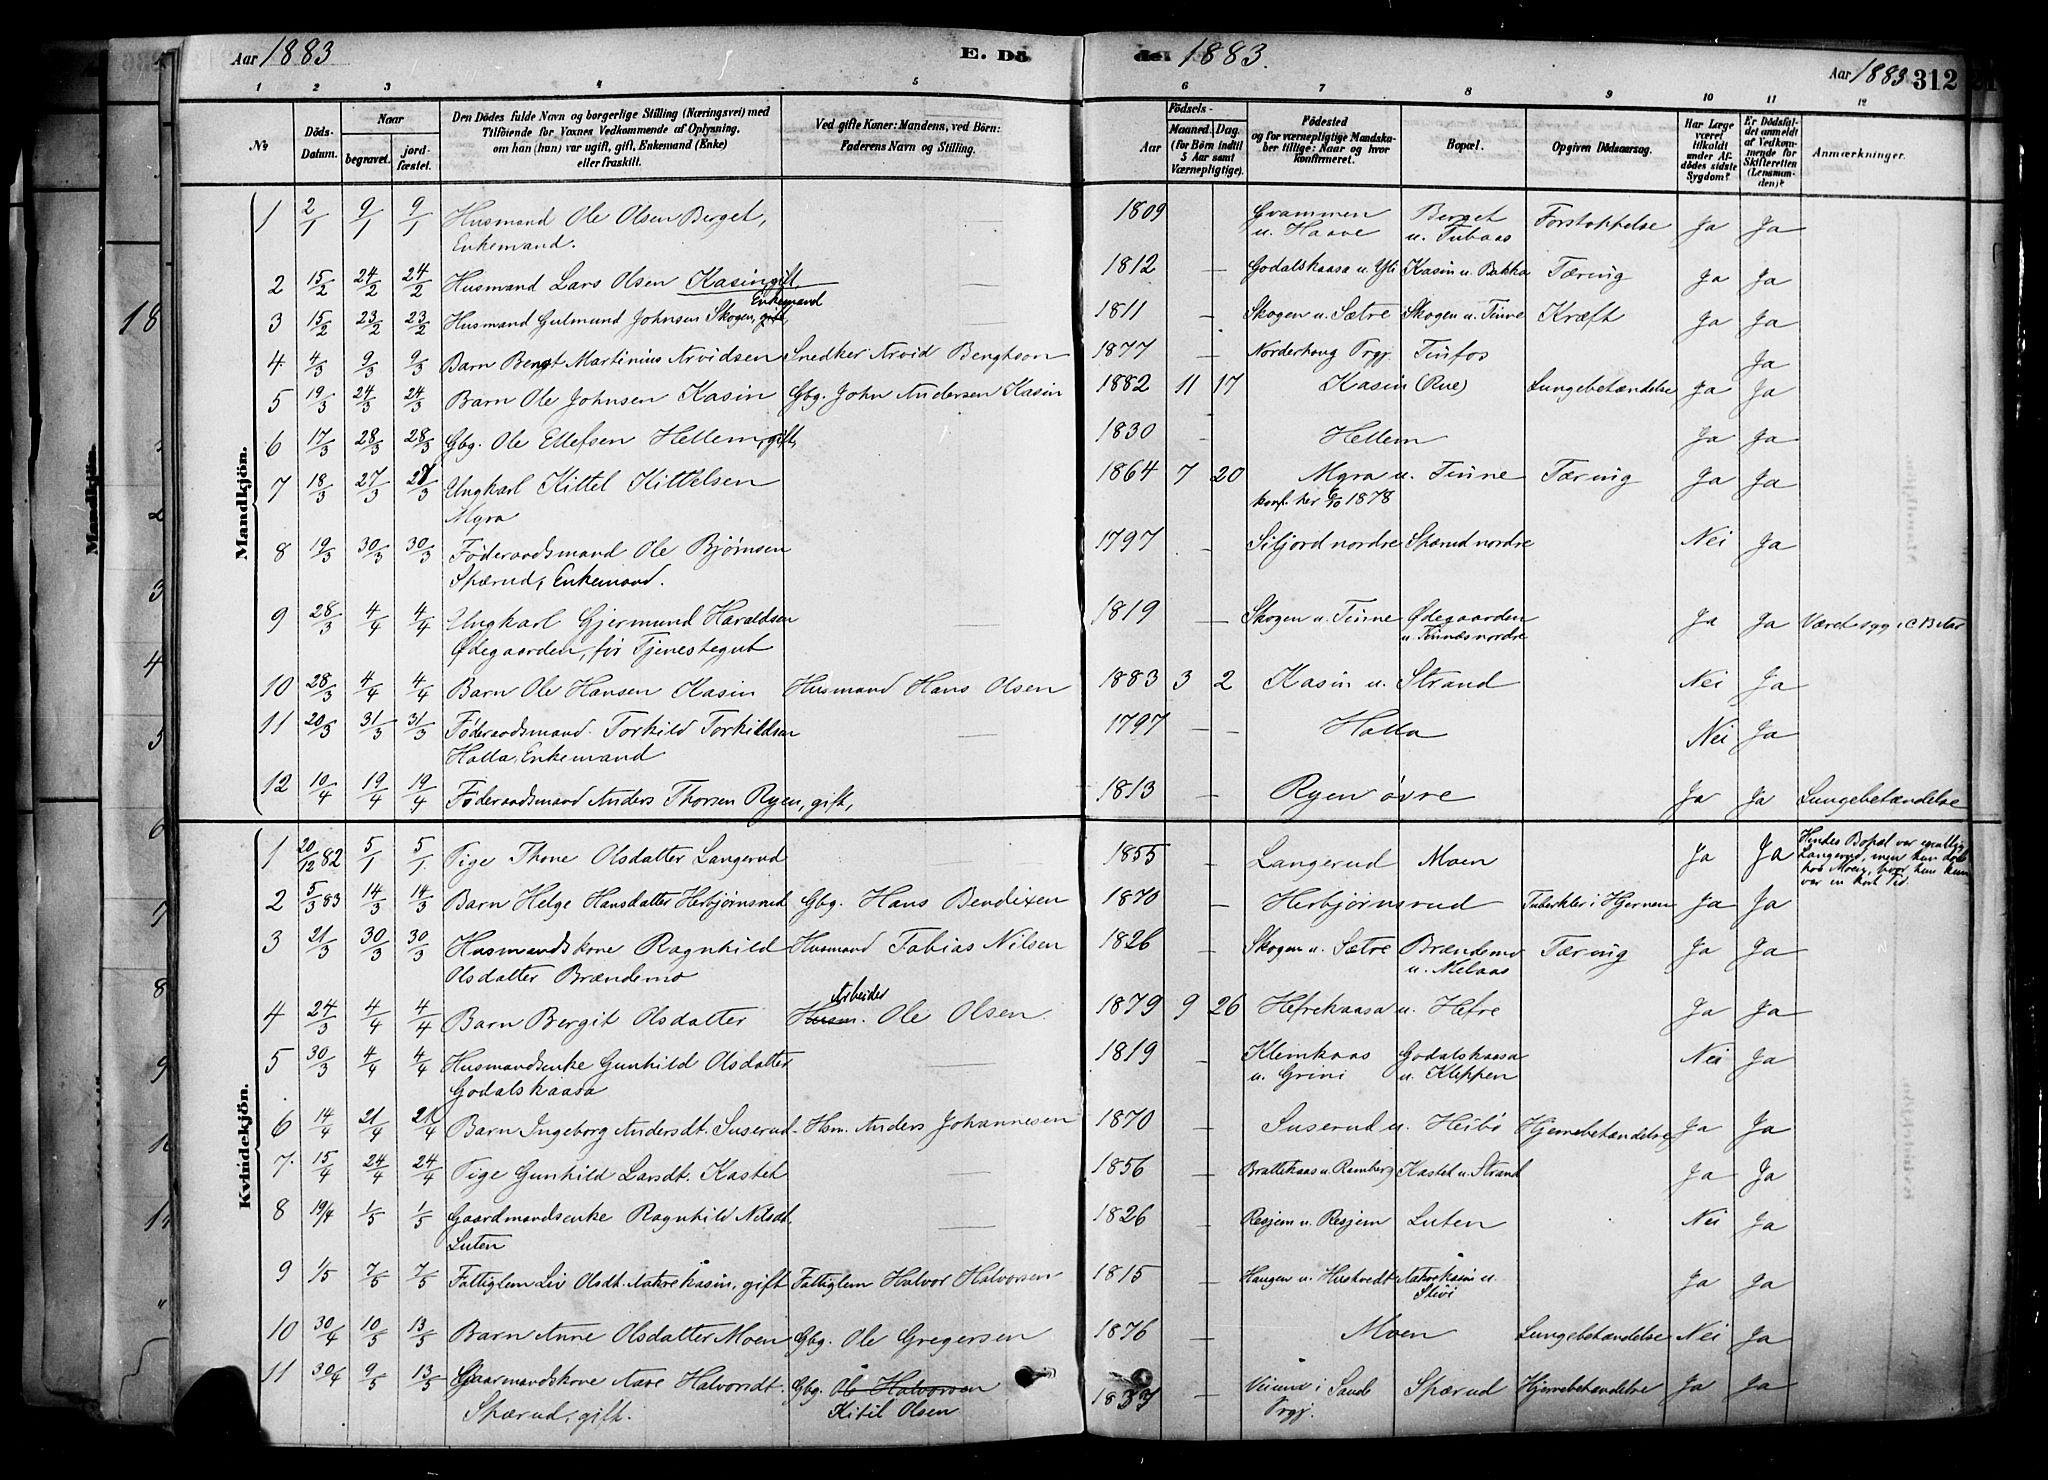 Aar 1883 E. Dö
de. 1883. Aar 1883 312
1 2 3 4 5 6 7 8 9 10 11 12
No Döds-Datum. Naar begravet. jord-fæstet. Den Dödes fulde Navn og borgerlige Stilling (Næringsvei) med Tilföiende for Voxnes Vedkommende af Oplysning, om han (hun) var ugift, gift, Enkemand (Enke) eller fraskilt. Ved gifte Koner: Mandens, ved Börn: Faderens Navn og Stilling. Födsels- Aar Maaned. Dag. (for Börn indtil 5 Aar samt Værnepligtige). Födested og for værnepligtige Mandska-ber tillige: Naar og hvor konfirmeret. Bopæl. Opgiven Dödsaarsag. Har Læge været tilkaldt under Af-dödes sidste Sygdom? Er Dödsfal-det anmeldt af Vedkom-mende for Skifteretten (Lensman-den)? Anmærkninger.
Mandkjön.
1 2/1 9/1 9/1 Husmand Ole Olsen Berget, Enkemand. 1809 - Gvammen u. Haave Berget u. Tubaas Forstoppelse Ja Ja
2 15/2 24/2 24/2 Husmand Lars Olsen Kasin gift, 1812 - Godalskaasa u. Yli Kasin u. Bakka Tæring Ja Ja
3 15/2 23/2 23/2 Husmand Gulmund Johnsen Skogen, gift, Enkemand 1811 - Skogen u. Sætre Skogen u. Tinne Kræft Ja Ja
4 4/3 9/3 9/3 Barn Bengt Martinius Arvidsen Snedker Arvid Bengtson 1877 - Norderhoug Prgj. Tinfos Ja
5 19/3 24/3 24/3 Barn Ole Johnsen Kasin Gbg. John Andersen Kasin 1882 11 17 Kasin (Rue) Lungebetændelse Ja Ja
6 17/3 28/3 28/3 Gbg. Ole Ellefsen Hellem, gift, 1830 - Hellem Ja Ja
7 18/3 27/3 27/3 Ungkarl Kittel Kittelsen Myra 1864 7 20 Myra u. Tinne konf. her 6/10 1878 Tæring Ja Ja
8 19/3 30/3 30/3 Föderaadsmand Ole Bjørnsen Spærud, Enkemand. 1797 - Siljord nordre Spærud nordre Nei Ja
9 28/3 4/4 4/4 Ungkarl Gjermund Haraldsen Ødegaarden, før Tjenestegut 1819 - Skogen u. Tinne Ødegaarden u. Tinnes nordre Ja Ja
10 28/3 4/4 4/4 Barn Ole Hansen Kasin Husmand Hans Olsen 1883 3 2 Kasin u. Strand Nei Ja
11 20/3 31/3 31/3 Föderaadsmand Torkild Torkildsen Holla, Enkemand 1797 - - Holla Nei Ja
12 10/4 19/4 19/4 Föderaadsmand Anders Thorsen Ryen, gift, 1813 - Ryen øvre Ja Ja Lungebetændelse
Kvindekjön.
1 20/12 82 5/1 5/1 Pige Thone Olsdatter Langerud 1855 - Langerud Moen Ja Ja Hendes Bopæl var egentlig Langerud, men hun døde hos Moen, hvor hun kun var en kort Tid.
2 5/3 83 14/3 14/3 Barn Helge Hansdatter Herbjørnsrud Gbg. Hans Bendixen 1870 - Herbjørnsrud Tuberkler i Hjernen Ja Ja
3 21/3 30/3 30/3 Husmandskone Ragnhild Olsdatter Brændemo Husmand Tobias Nilsen 1826 - Skogen u. Sætre Brændemo u. Melaas Tæring Ja Ja
4 24/3 4/4 4/4 Barn Bergit Olsdatter Husm. Arbeider Ole Olsen 1879 9 26 Hefrekaasa u. Hefre Ja Ja
5 30/3 4/4 4/4 Husmandsenke Gunhild Olsdatter Godalskaasa 1819 - Klemkaas u. Grini Godalskaasa u. Kleppen Nei Ja
6 14/4 21/4 21/4 Barn Ingeborg Andersdt. Suserud Hsm. Anders Johannesen 1870 - Suserud u. Heibø Hjernebetændelse Ja Ja
7 15/4 24/4 24/4 Pige Gunhild Larsdt. Kastet 1856 - Brattekaas u. Remberg Kastet u. Strand Ja Ja
8 19/4 1/5 1/5 Gaardmandsenke Ragnhild Nilsdt. Luten 1826 - Resjem u. Resjem Luten Nei Ja
9 1/5 7/5 7/5 Fattiglem Liv Olsdt. Aakrekåsin, gift Fattiglem Halvor Halvorsen 1815 - Haugen u. Huskvedt Aakrekåsin u. Stivi Ja Ja
10 30/4 10/5 13/5 Barn Anne Olsdatter Moen Gbg. Ole Gregersen 1876 - Moen Lungebetændelse Nei Ja
11 30/4 9/5 13/5 Gaarmandskone Aase Halvorsdt. Spærud, gift. Gbg. Ole Halvorsen Kitil Olsen 1837 - i Saude Prgj. Spærud Hjernebetændelse Ja Ja